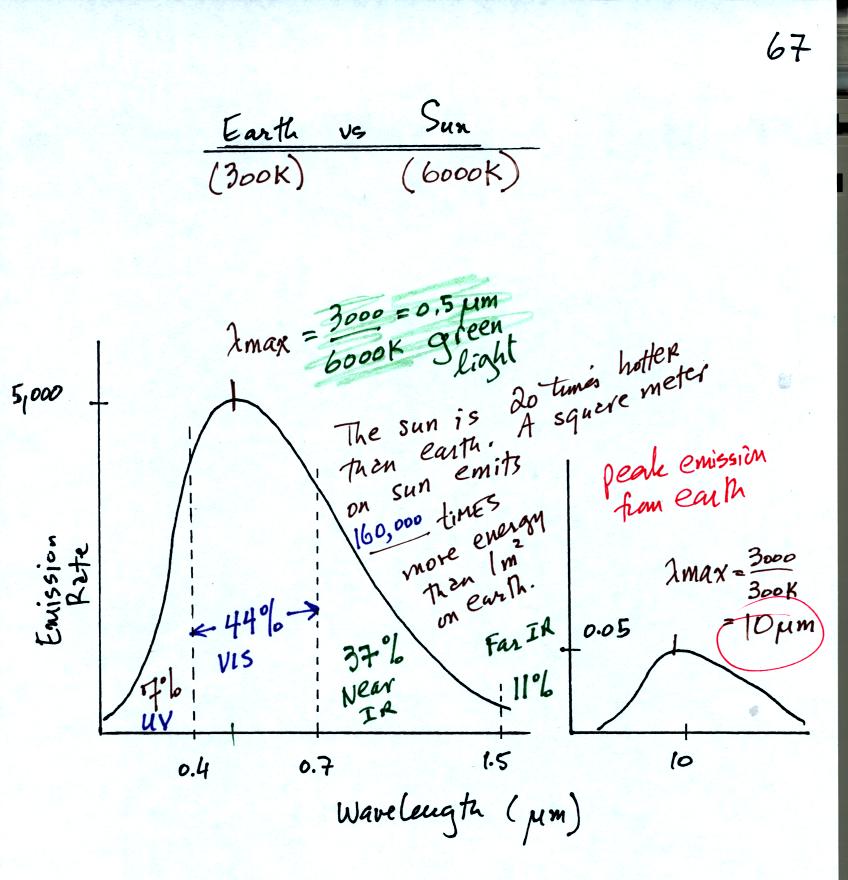 67
Earth vs Sun
(300K) (6000K)
λmax = 3000 = 0.5 μm
6000K green
light
5,000
The sun is 20 times hotter
than earth. A square meter
on sun emits
160,000 times
more energy
than 1m²
on earth.
peak emission
from earth
λmax = 3000
300K
= 10 μm
Emission
Rate
44%
VIS
37%
Near
IR
7%
UV
Far IR
11%
0.05
0.4 0.7 1.5 10
Wavelength (μm)